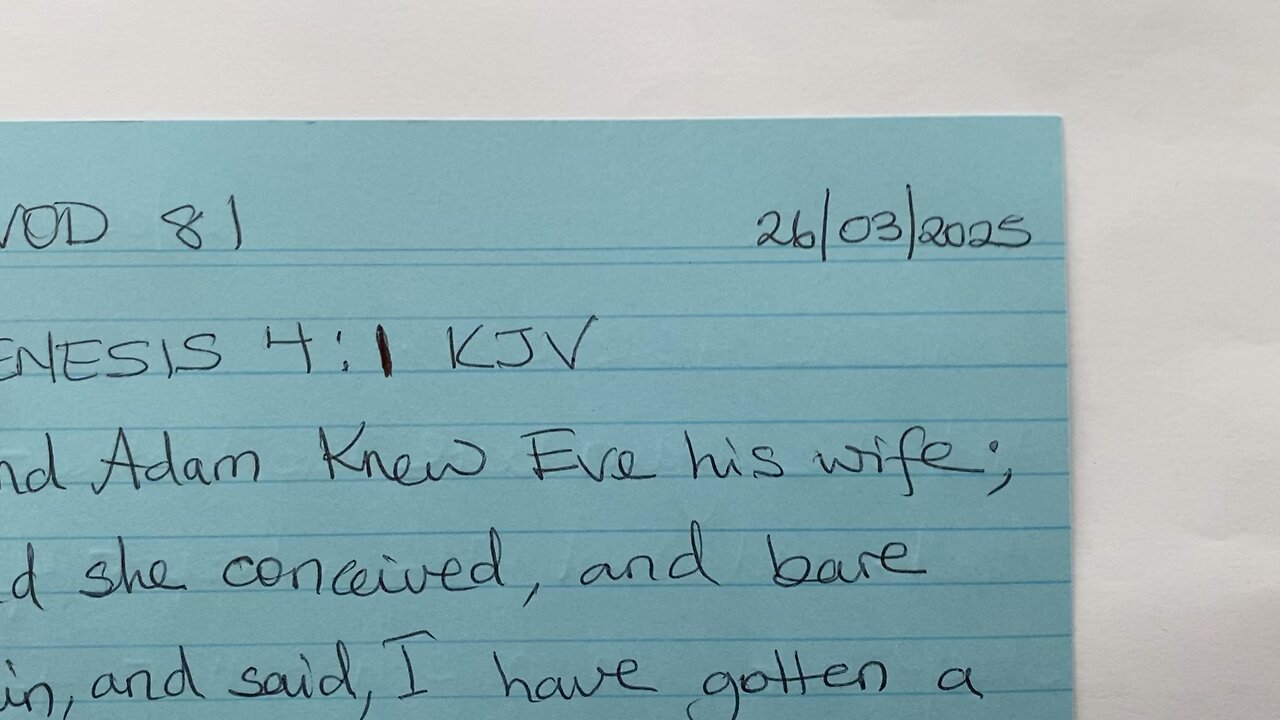 VOD 81 26/03/2025
ENESIS 4:1 KJV
nd Adam Knew Eve his wife;
d she conceived, and bare
in, and said, I have gotten a